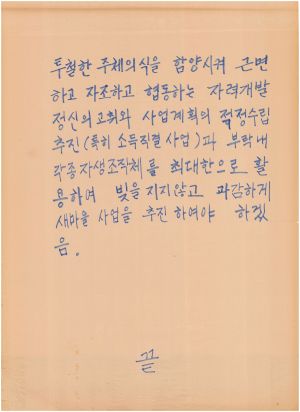 투철한 주체의식을 함양시켜 근면
하고 자조하고 협동하는 자력개발
정신의 고취와 사업계획의 적정수립
추진(특히 소득직결 사업)과 부락내
각종자생조직체를 최대한으로 활
용하여 빚을지지않고 과감하게
새마을 사업을 추진 하여야 하겠
음.
끝